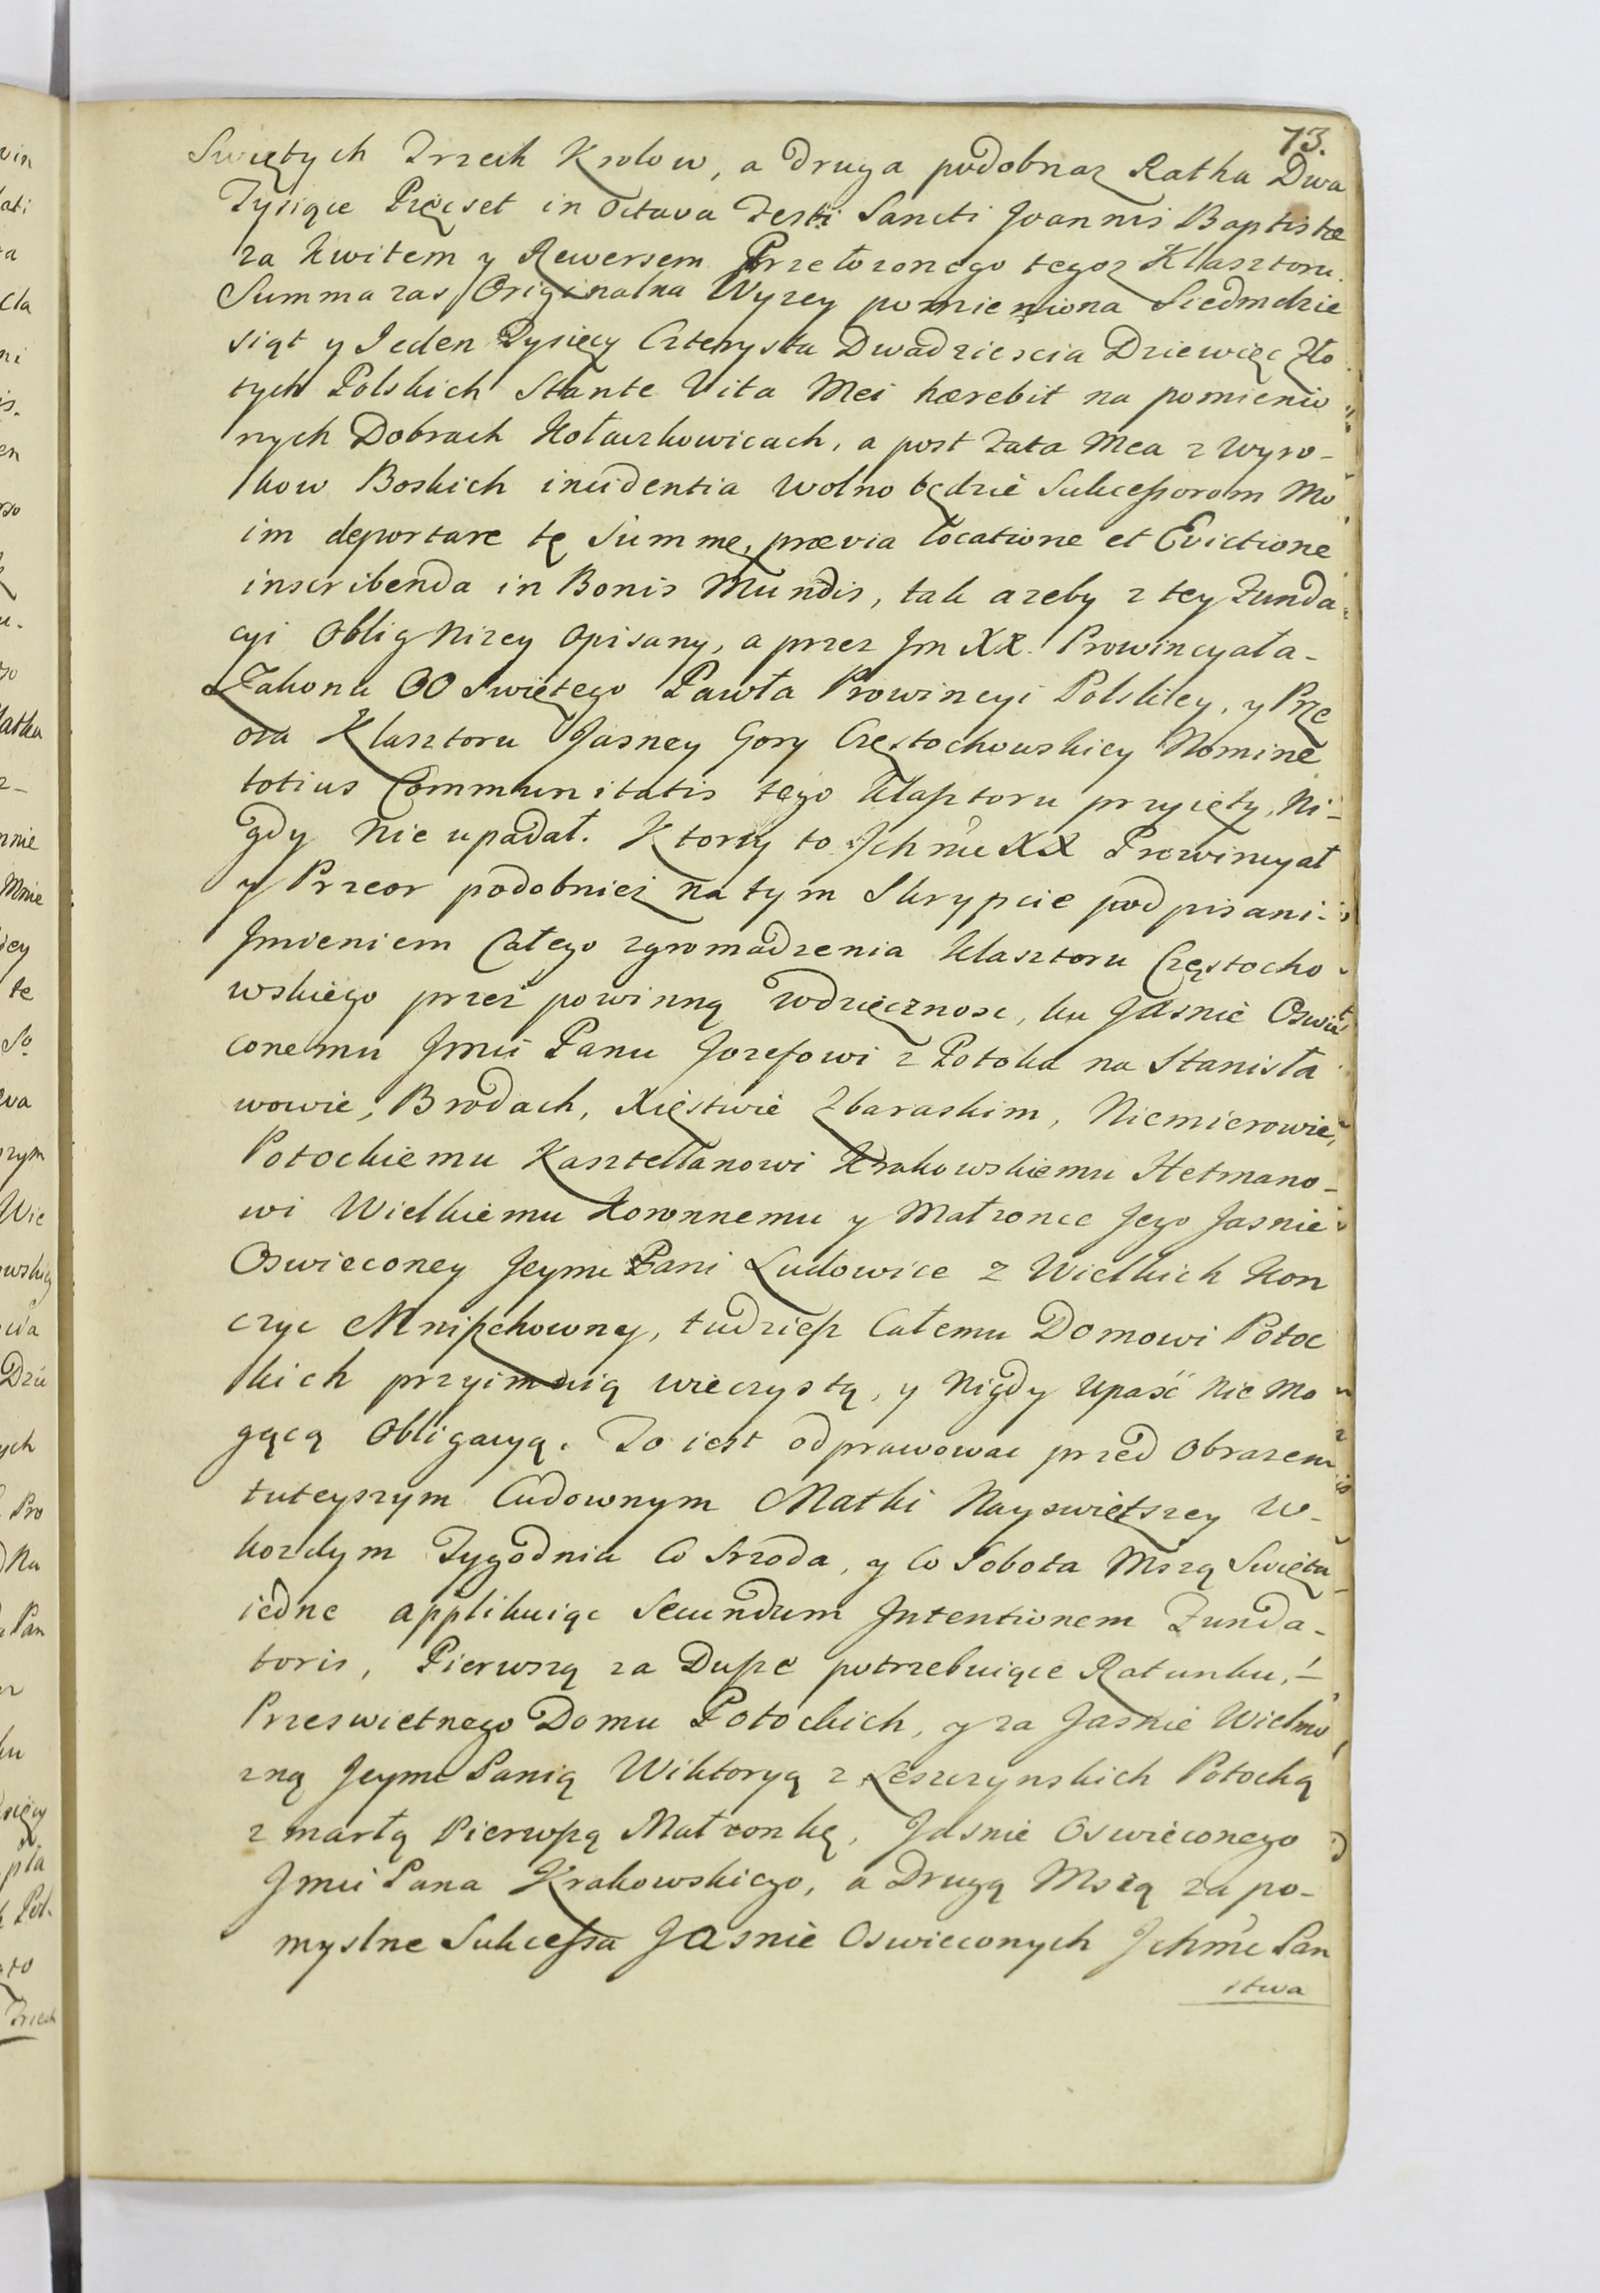 73.
Swiętych Trzech Krolow, a druga podobnaz Ratha Dwa
Tysiące Pięcset in Octava Festi Sancti Joannis Baptistæ
za Kwitem y Rewersem Przełozonego tegoz Klasztoru.
Summa zas Originalna Wyzey pomieniona Siedmdzie
siąt y Jeden Tysięcy Czterysta Dwadziescia Dziewięc Zło
tych Polskich Stante Vita Mei hærebit na pomienio
nych Dobrach Kołaczkowicach, a post Fata Mea z Wyro-
kow Boskich incidentia wolno będzie Sukceſsorom Mo
im deportare tę Summę, prævia locatione et Evictione
inscribenda in Bonis Mundis, tak azeby z tey Funda
cyi Oblig Nizey Opisany, a przez Jm XX. Prowincyała-
Zakonu OO Swiętego Pawła Prowincyi Polskiey, y Prze
ora Klasztoru Jasney Gory Częstochowskiey Nomine
totius Communitatis tego Klaſztoru przyięty, Ni-
gdy Nie upadał. Ktorzy to Ichmc XX Prowincyał
y Przeor podobniez na tym Skrypcie podpisani
Jmieniem Całego zgromadzenia Klasztoru Częstocho
wskiego przez powinną wdzięcznosc, ku Jasnie Oswie
conemu Jmci Panu Jozefowi z Potoka na Stanisła
wowie, Brodach, Xięstwie Zbaraskim, Niemierowie,
Potockiemu Kasztellanowi Krakowskiemu Hetmano-
wi Wielkiemu Koronnemu y Małzonce Jego Jasnie
Oswieconey Jeymc Pani Ludowice z Wielkich Kon
czyc Mniſzchowny, tudzieſz Całemu Domowi Potoc
kich przyimuią wieczystą, y Nigdy Upaść Nie Mo
gącą Obligacyą. To iest odprawowac przed Obrazem
tuteyszym Cudownym Matki Nayswiętszey w-
kozdym Tygodniu Co Srzoda, y Co Sobota Mszą Swięta
iedne applikuiąc Secundum Intentionem Funda-
toris, Pierwszą za Duſze potrzebuiące Ratunku,
Przeswietnego Domu Potockich, y za Jasnie Wielmo
zną Jeymc Panią Wiktoryą z Leszczynskich Potocką
zmarłą Pierwſzą Małzonkę, Jasnie Oswieconego
Jmci Pana Krakowskiego, a Drugą Mszą za po-
myslne Sukceſsa Jasnie Oswieconych Ichmc Pan
stwa